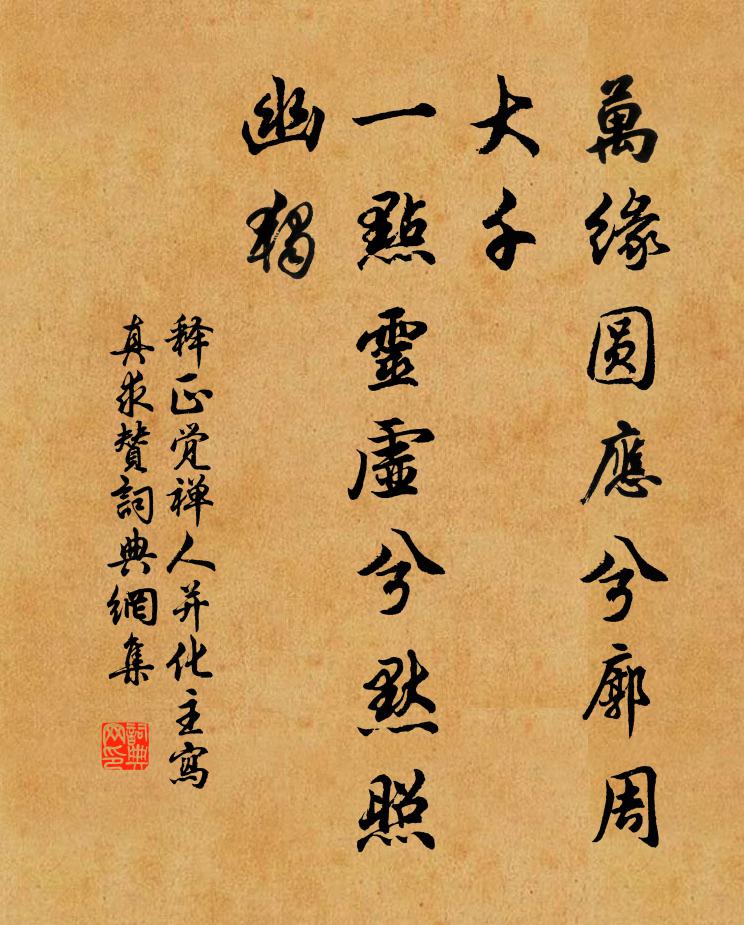 萬緣圓應兮廓周
大千
一點靈虛兮默照
幽獨
释正觉禅人并化主寫
真求賛詞典網集
詞典
网印